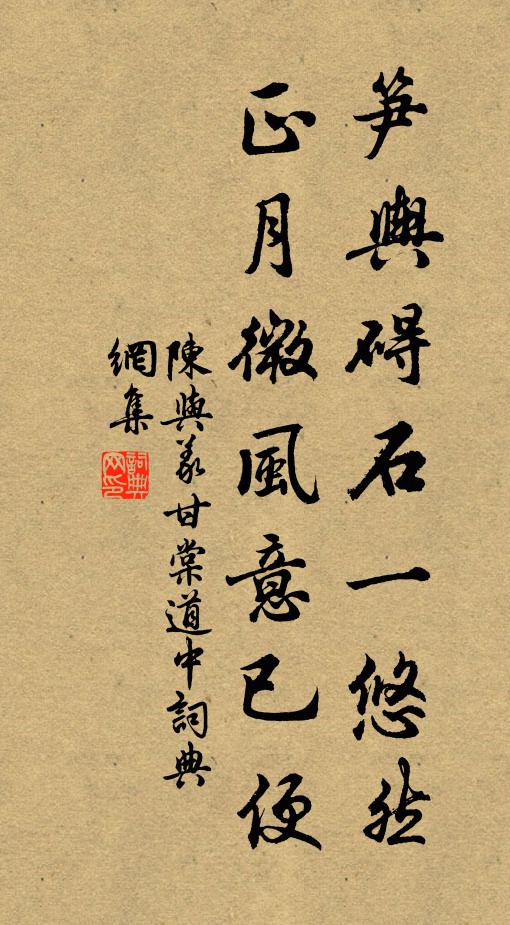 笋輿碍石一悠然
正月微風意已便
陳與義甘棠道中詞典
網集
詞典网印